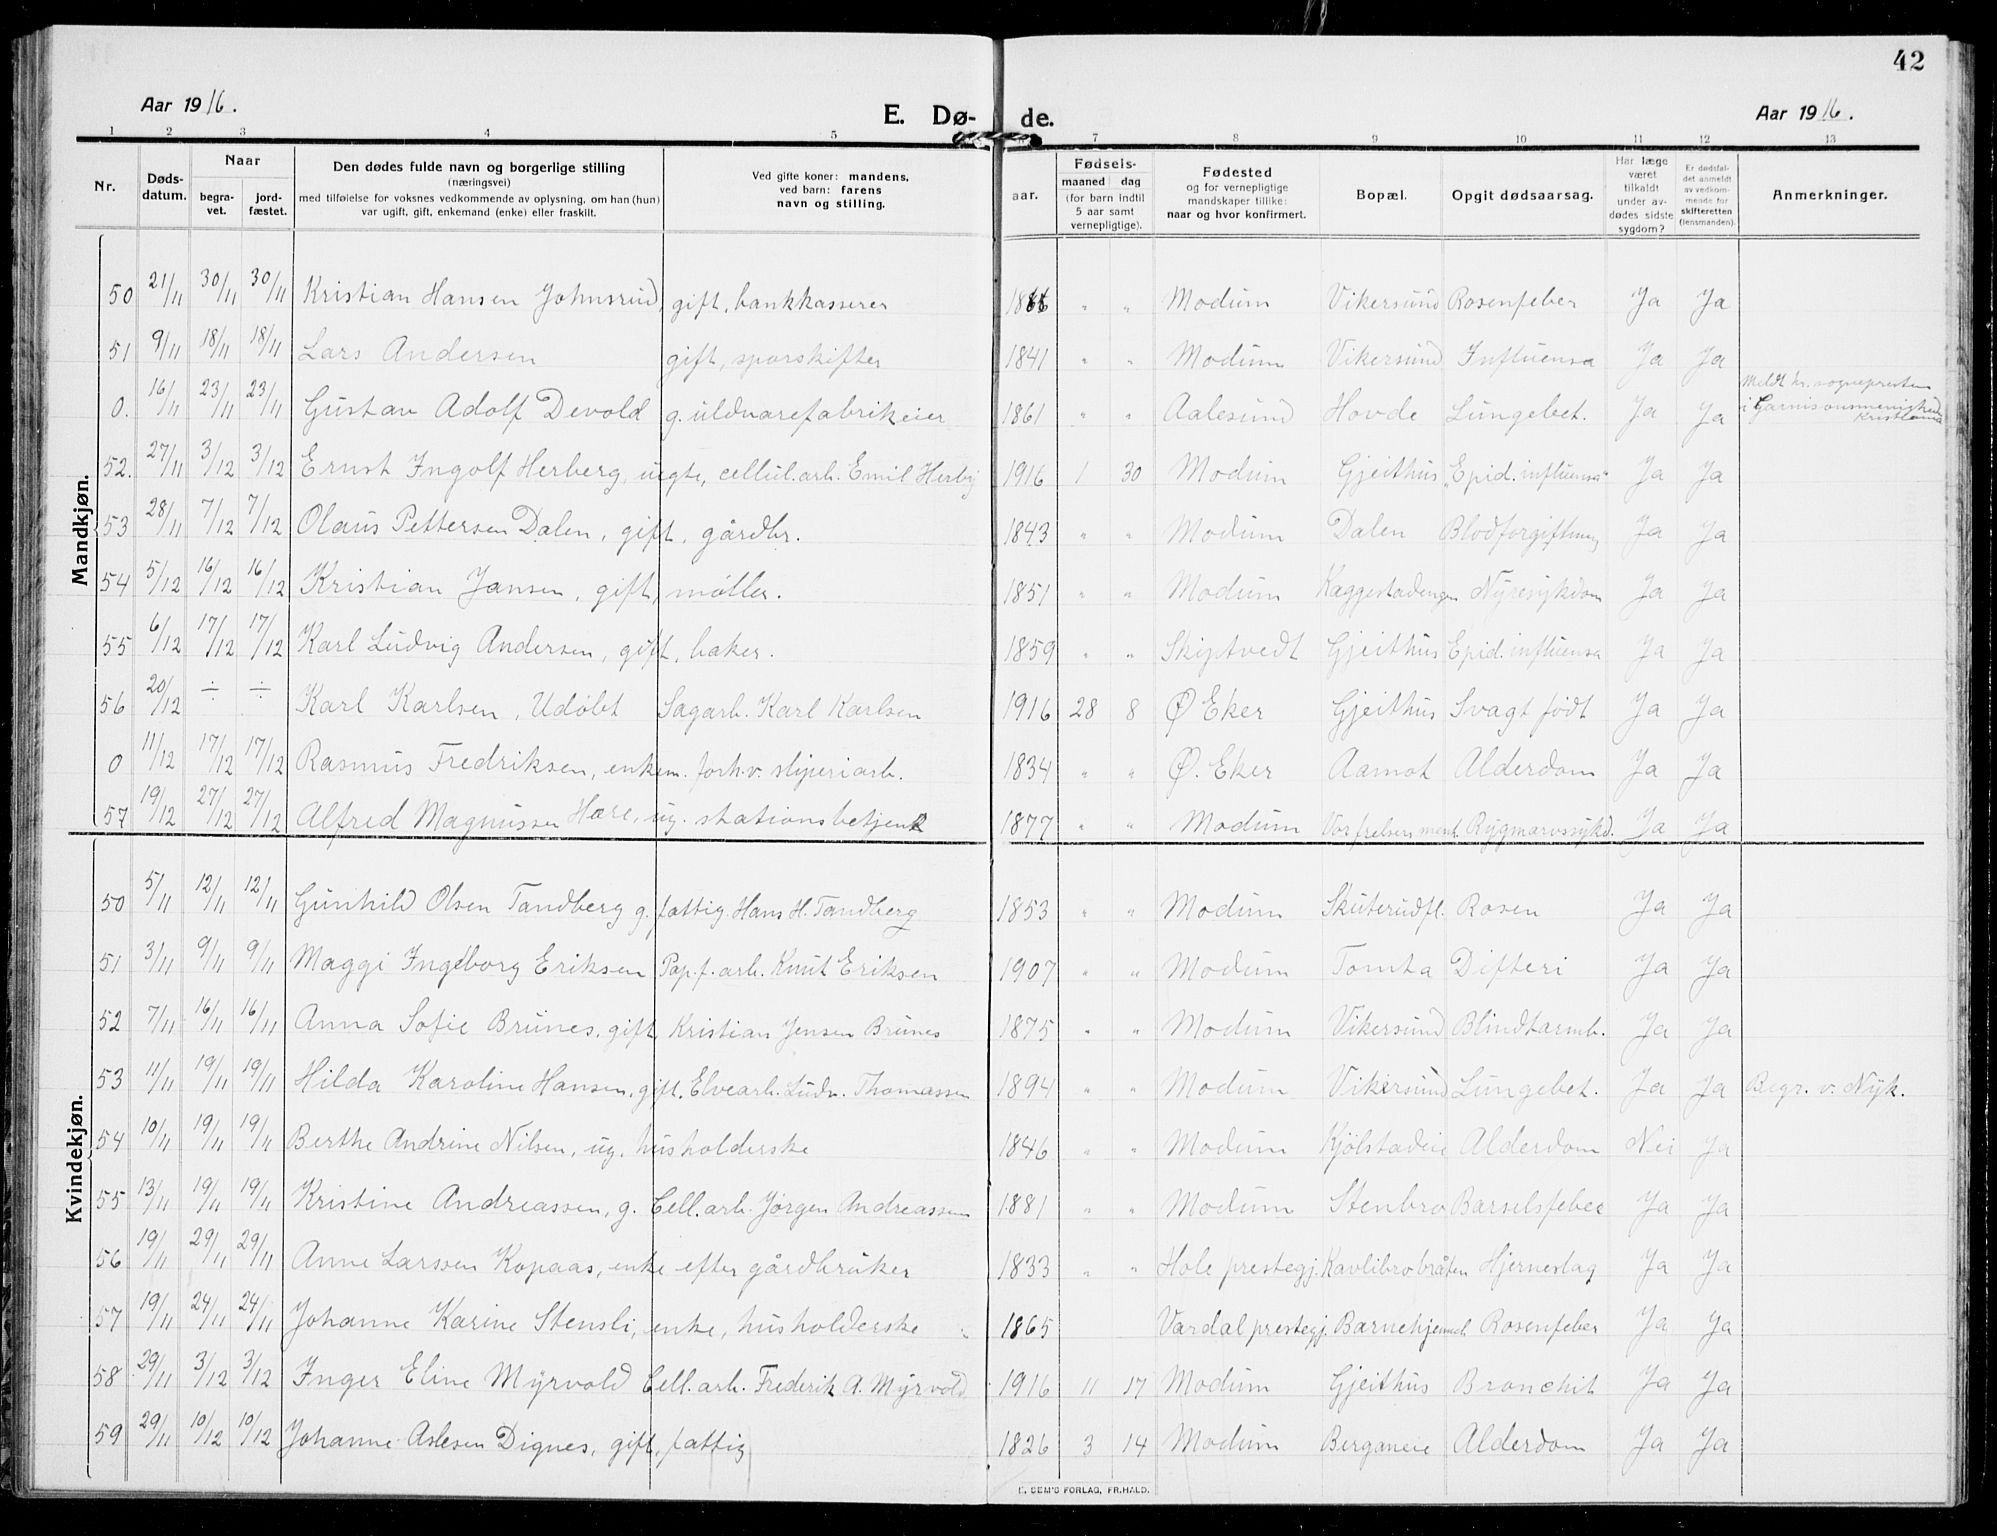 42
Aar 1916.
E. Dø-
de.
Aar 1916.
1 2 3 4 5 7 8 9 10 11 12 13
Nr.
Døds-
datum.
Naar
begra-
vet.
jord-
fæstet.
Den dødes fulde navn og borgerlige stilling
(næringsvei)
med tilføielse for voksnes vedkommende av oplysning, om han (hun)
var ugift, gift, enkemand (enke) eller fraskilt.
Ved gifte koner: mandens,
ved barn: farens
navn og stilling.
aar.
Fødsels-
maaned dag
(for barn indtil
5 aar samt
vernepligtige).
Fødested
og for vernepligtige
mandskaper tillike:
naar og hvor konfirmert.
Bopæl.
Opgit dødsaarsag.
Har læge
været
tilkaldt
under av-
dødes sidste
sygdom?
Er dødsfal-
det anmeldt
av vedkom-
mende for
skifteretten
(lensmanden).
Anmerkninger.
Mandkjøn.
50 21/11 30/11 30/11 Kristian Hansen Johnsrud, gift, bankkasserer " " Modum Vikersund Rosenfeber Ja Ja
51 9/11 18/11 18/11 Lars Andersen gift, sporskifter 1841 " " Modum Vikersund Influensa Ja Ja
0. 16/11 23/11 23/11 Gustav Adolf Devold g. uldvarefabrikeier 1861 " " Aalesund Hovde Lungebet. Ja Ja Meldt hr. sognepresten
i Garnisonsmenighed
Kristiania
52. 27/11 3/12 3/12 Ernst Ingolf Herberg, uegte, cellul.arb. Emil Herbg 1916 1 30 Modum Gjeithus "Epid. influensa" Ja Ja
53 28/11 7/12 7/12 Olaus Pettersen Dalen, gift, gårdbr. 1843 " " Modum Dalen Blodforgiftning Ja Ja
54 5/12 16/12 16/12 Kristian Jansen, gift, møller. 1851 " " Modum Kaggestadengen Nyresykdom Ja Ja
55 6/12 17/12 17/12 Karl Ludvig Andersen, gift, baker. 1859 " " Skiptvedt Gjeithus Epid. influensa Ja Ja
56 20/12 ÷ ÷ Karl Karlsen, Udøbt Sagarb. Karl Karlsen 1916 28 8 Ø Eker Gjeithus Svagt født Ja Ja
0 11/12 17/12 17/12 Rasmus Fredriksen, enkem. forh.v. sliperiarb. 1834 " " Ø. Eker Aamot Alderdom Ja Ja
57 19/12 27/12 27/12 Alfred Magnussen Hære, ug. stationsbetjent 1877 " " Modum Vor frelsers menh. Rygmarvssykd. Ja Ja
Kvindekjøn.
50 5/11 12/11 12/11 Gunhild Olsen Tandberg g. fattig. Hans H. Tandberg 1853 " " Modum Skuterudfl. Rosen Ja Ja
51 3/11 9/11 9/11 Maggi Ingeborg Eriksen Pap.f.arb. Knut Eriksen 1907 " " Modum Tomta Difteri Ja Ja
52 7/11 16/11 16/11 Anna Sofie Brunes, gift, Kristian Jensen Brunes 1875 " " Modum Vikersund Blindtarmb. Ja Ja
53 11/11 19/11 19/11 Hilda Karoline Hansen, gift, Elvearb. Ludv. Thomassen 1894 " " Modum Vikersund Lungebet. Ja Ja Begr. v. Nyk.
54 10/11 19/11 19/11 Berthe Andrine Nilsen, ug. husholderske 1846 " " Modum Kjølstadeie Alderdom Nei Ja
55 13/11 19/11 19/11 Kristine Andreassen, g. Cell.arb. Jørgen Andreassen 1881 " " Modum Stenbro Barselsfeber Ja Ja
56 19/11 29/11 29/11 Anne Larssen Kopaas, enke efter gårdbruker 1833 " " Hole prestegj. Kavlibrobråten Hjerneslag Ja Ja
57 19/11 24/11 24/11 Johanne Karine Stensli, enke, husholderske 1865 Vardal prestegj. Barnehjemmet Rosenfeber Ja Ja
58 29/11 3/12 3/12 Inger Eline Myrvold Cell.arb. Frederik A. Myrvold 1916 11 17 Modum Gjeithus Bronchit Ja Ja
59 29/11 10/12 10/12 Johanne Aslesen Dignes, gift, fattig 1826 3 14 Modum Berganeie Alderdom Ja Ja
E. SEM'S FORLAG, FR.HALD.